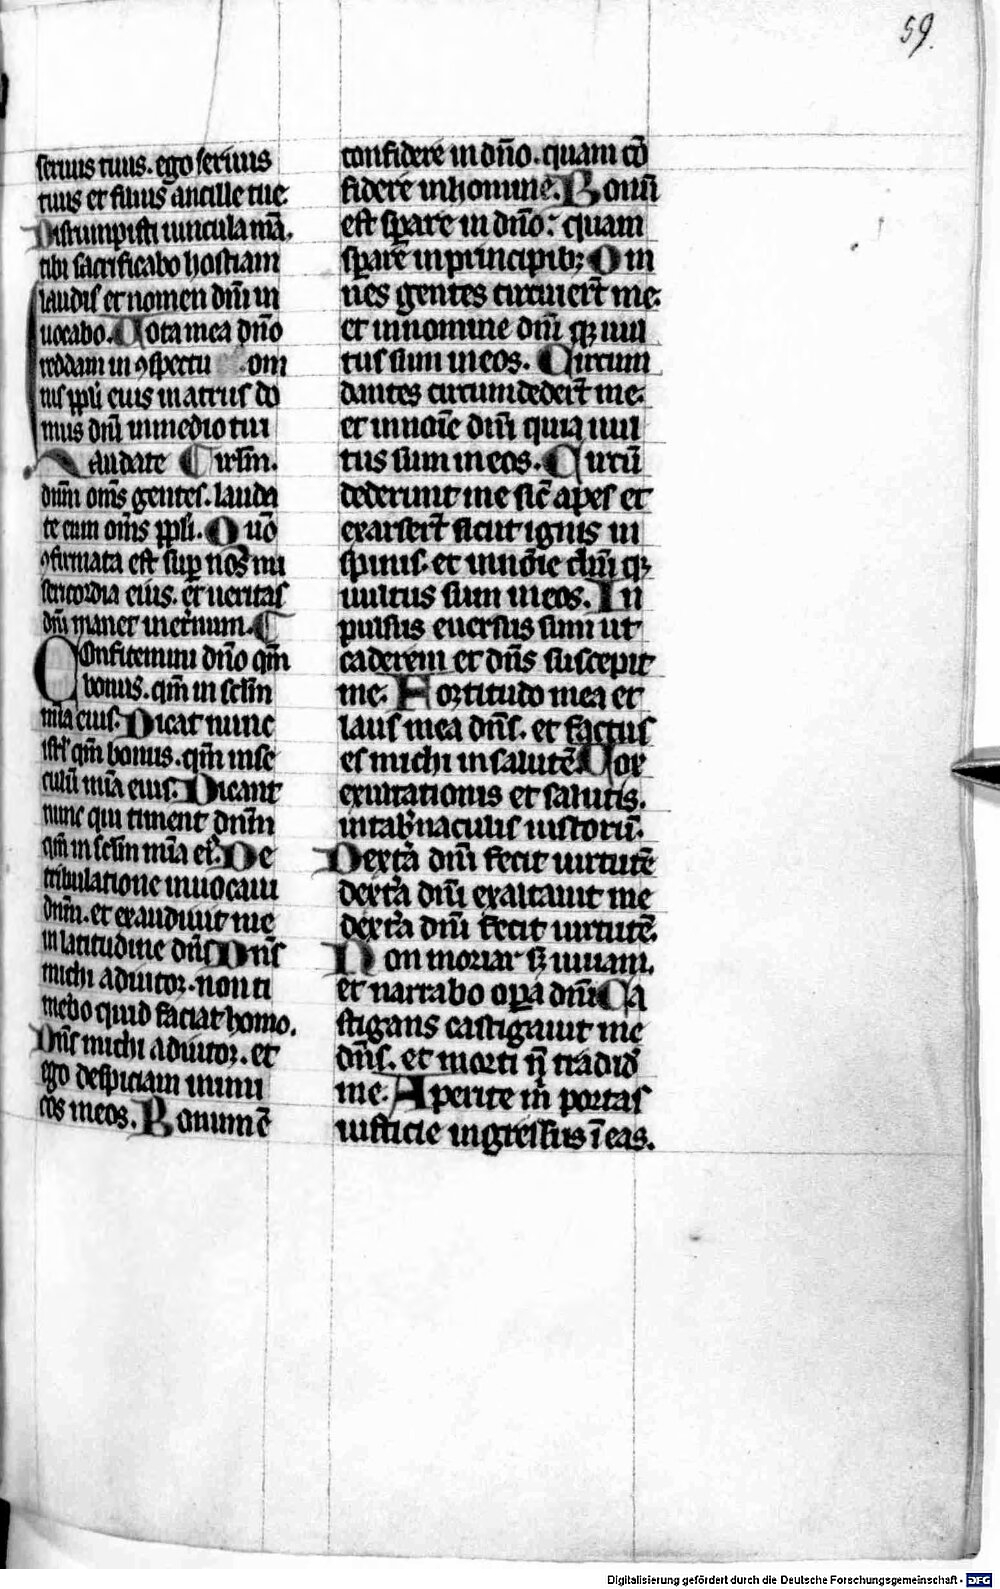 59.
seruus tuus. ego seruus
tuus et filius ancille tue.
Disrumpisti uincula mā.
tibi sacrificabo hostiam
laudis et nomen dn̄i in
uocabo. Uota mea dn̄o
reddam in ꝯspectu om
nis ppl̄i eius in atriis do
mus dn̄i in medio tui
Laudate irl̄m.
dn̄m om̄s gentes. lauda
te eum om̄s ppl̄i. Quō
ꝯfirmata est sup̄ nos mi
sericordia eius. et ueritas
dn̄i manet in et̄num.
Confitemini dn̄o qm̄
bonus. qm̄ in scl̄m
mīa eius. Dicat nunc
isrl̄ qm̄ bonus. qm̄ in se
culū mīa eius. Dicant
nunc qui timent dn̄m
qm̄ in scl̄m mīa eꝰ. De
tribulatione inuocaui
dn̄m. et exaudiuit me
in latitudine dn̄s Dn̄s
michi adiutor. non ti
mebo quid faciat homo.
Dn̄s michi adiutor. et
ego despiciam inimi
cos meos. Bonum ē
confidere in dn̄o. quam cō
fidere in homine. Bonū
est sꝑare in dn̄o: quam
sꝑare in principibꝫ Om
nes gentes circuier̄t me.
et in nomine dn̄i qꝫ uul
tus sum in eos. Circum
dantes circumdeder̄t me.
et in noīe dn̄i quia uul
tus sum in eos. Circū
dederunt me sic̄ apes et
exarser̄t sicut ignis in
spinis. et in nōie dn̄i qꝫ
uultus sum in eos. In
pulsus euersus sum ut
caderem et dn̄s suscepit
me. Fortitudo mea et
laus mea dn̄s. et factus
es michi in salutē. Uox
exultationis et salutis.
in tab̄naculis iustorū.
Dext̄a dn̄i fecit uirtutē
dext̄a dn̄i exaltauit me
dext̄a dn̄i fecit uirtutē.
Non moriar sꝫ uiuam.
et narrabo oꝑa dn̄i Ca
stigans castigauit me
dn̄s. et morti n̄ tradid̄
me. Aperite m̄ portas
iusticie ingressus ī eas.
Digitalisierung gefördert durch die Deutsche Forschungsgemeinschaft - DFG